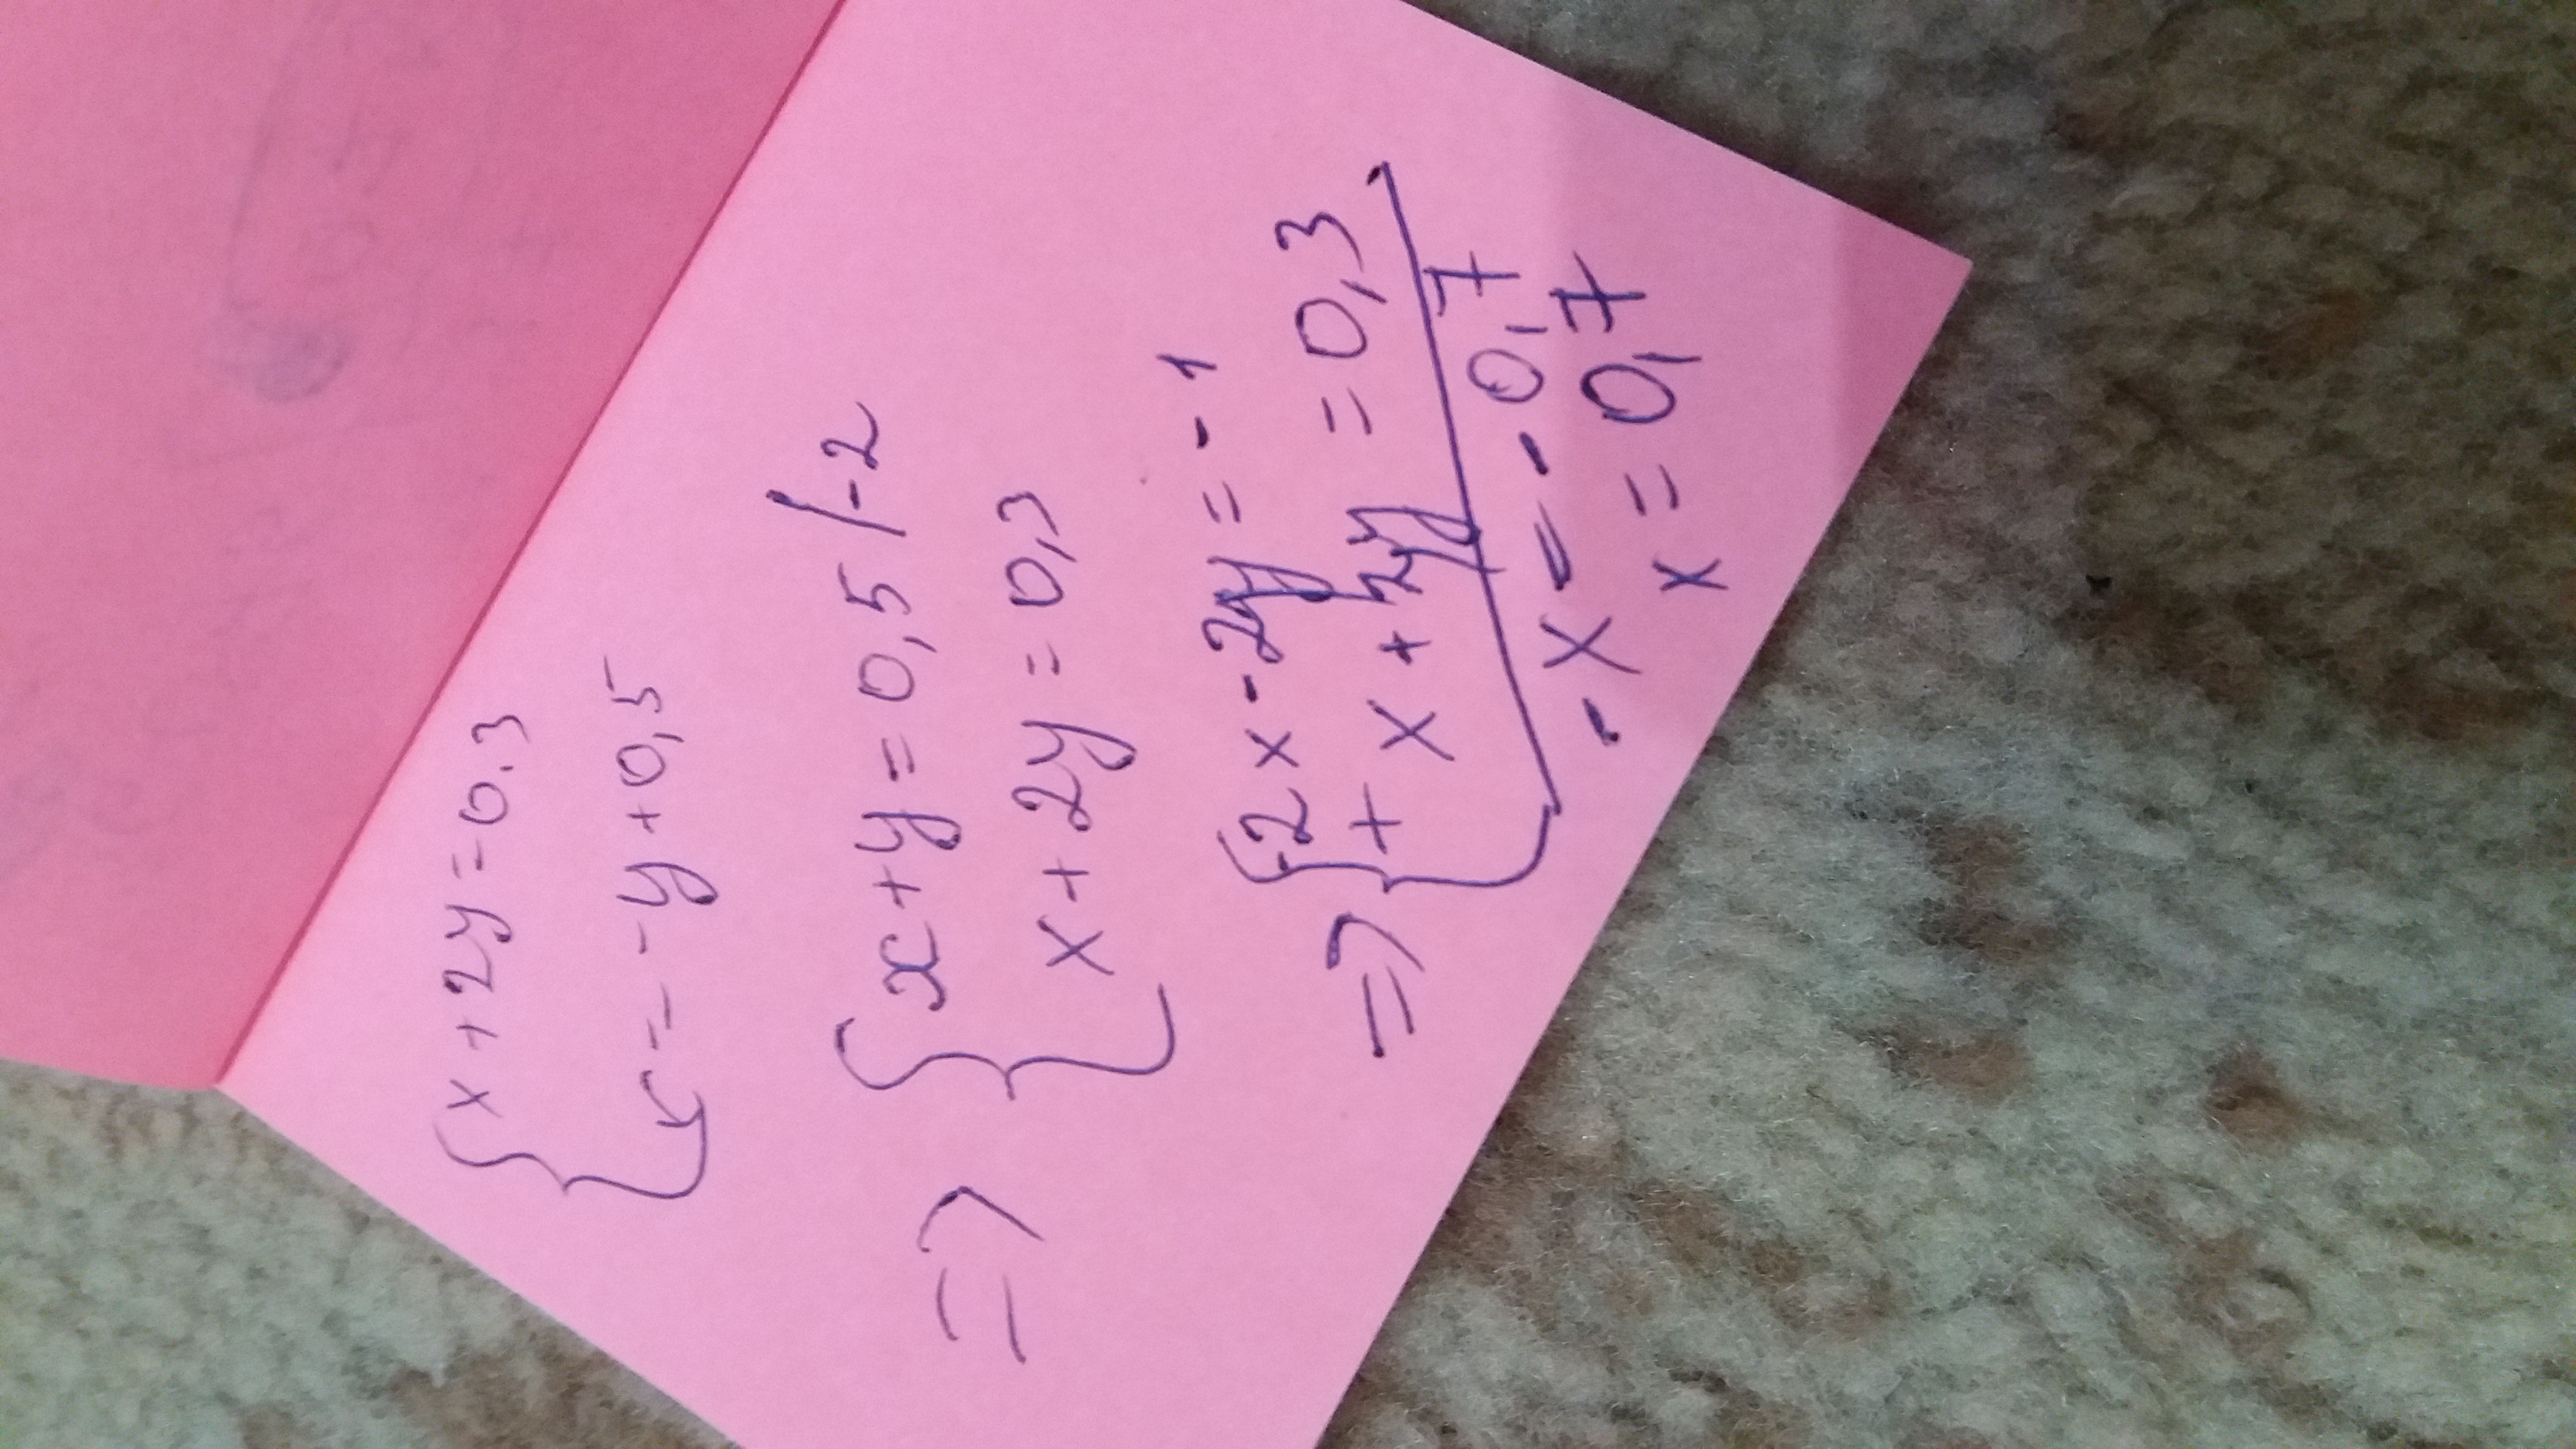 { x + 2y = 0.3
x = -y + 0,5
=> { x + y = 0,5 /-2
x + 2y = 0,3
=> { -2x - 2y = -1
+ x + 2y = 0,3
-x = -0,7
x = 0,7